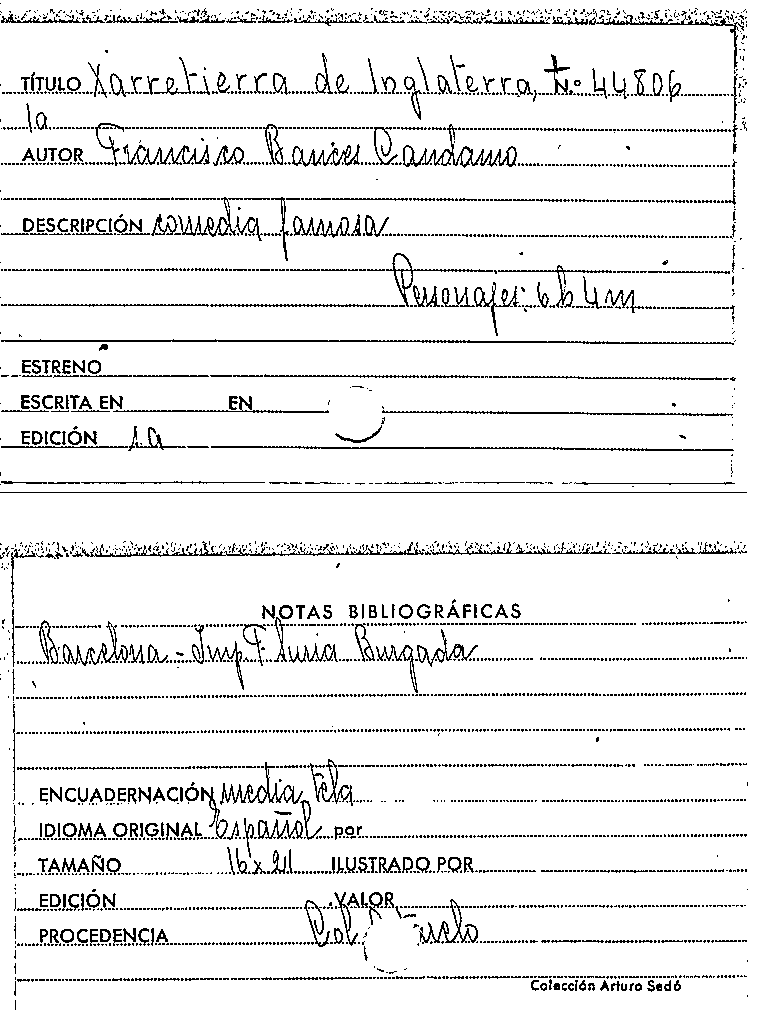 TÍTULO Xarretierra de Inglaterra, N.º 44806
la
AUTOR Francisco Bances Candamo
DESCRIPCIÓN comedia famosa
Personajes: 6 h 4 m
ESTRENO
ESCRITA EN EN
EDICIÓN 1a
NOTAS BIBLIOGRÁFICAS
Barcelona - Imp F. Suria Burgada
ENCUADERNACIÓN media tela
IDIOMA ORIGINAL Español por
TAMAÑO 16 x 21 ILUSTRADO POR
EDICIÓN VALOR
PROCEDENCIA Col.
Colección Arturo Sedó